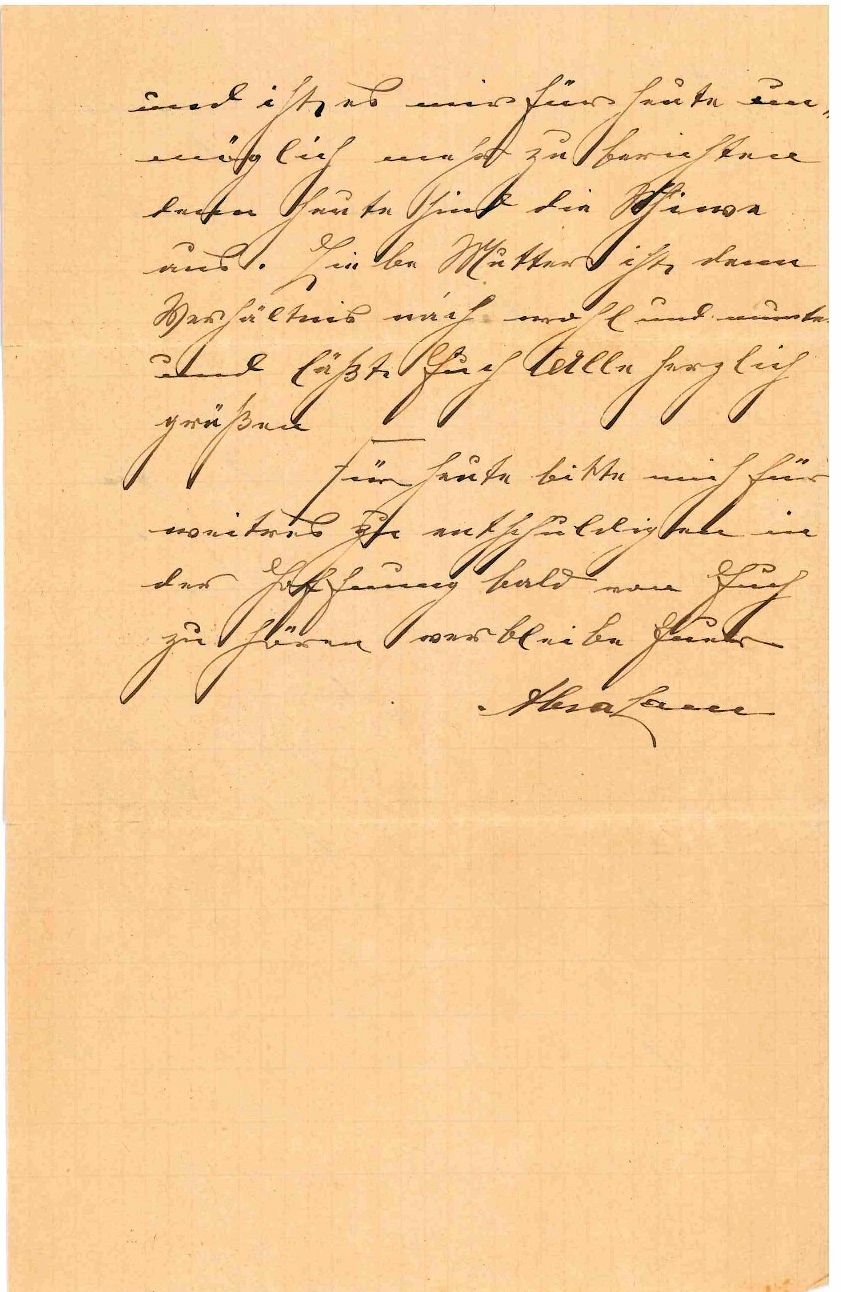 und ist es mir für heute un„
möglich mehr zu berichten
denn heute sind die Schiwe
aus. Liebe Mutter ist denn
Verhältnis nach wohl und munter
und läßt Euch Alle herzlich
grüßen
Für heute bitte mich für
weitres zu entschuldigen in
der Hoffnung bald von Euch
zu hören verbleibe Euer
Abraham